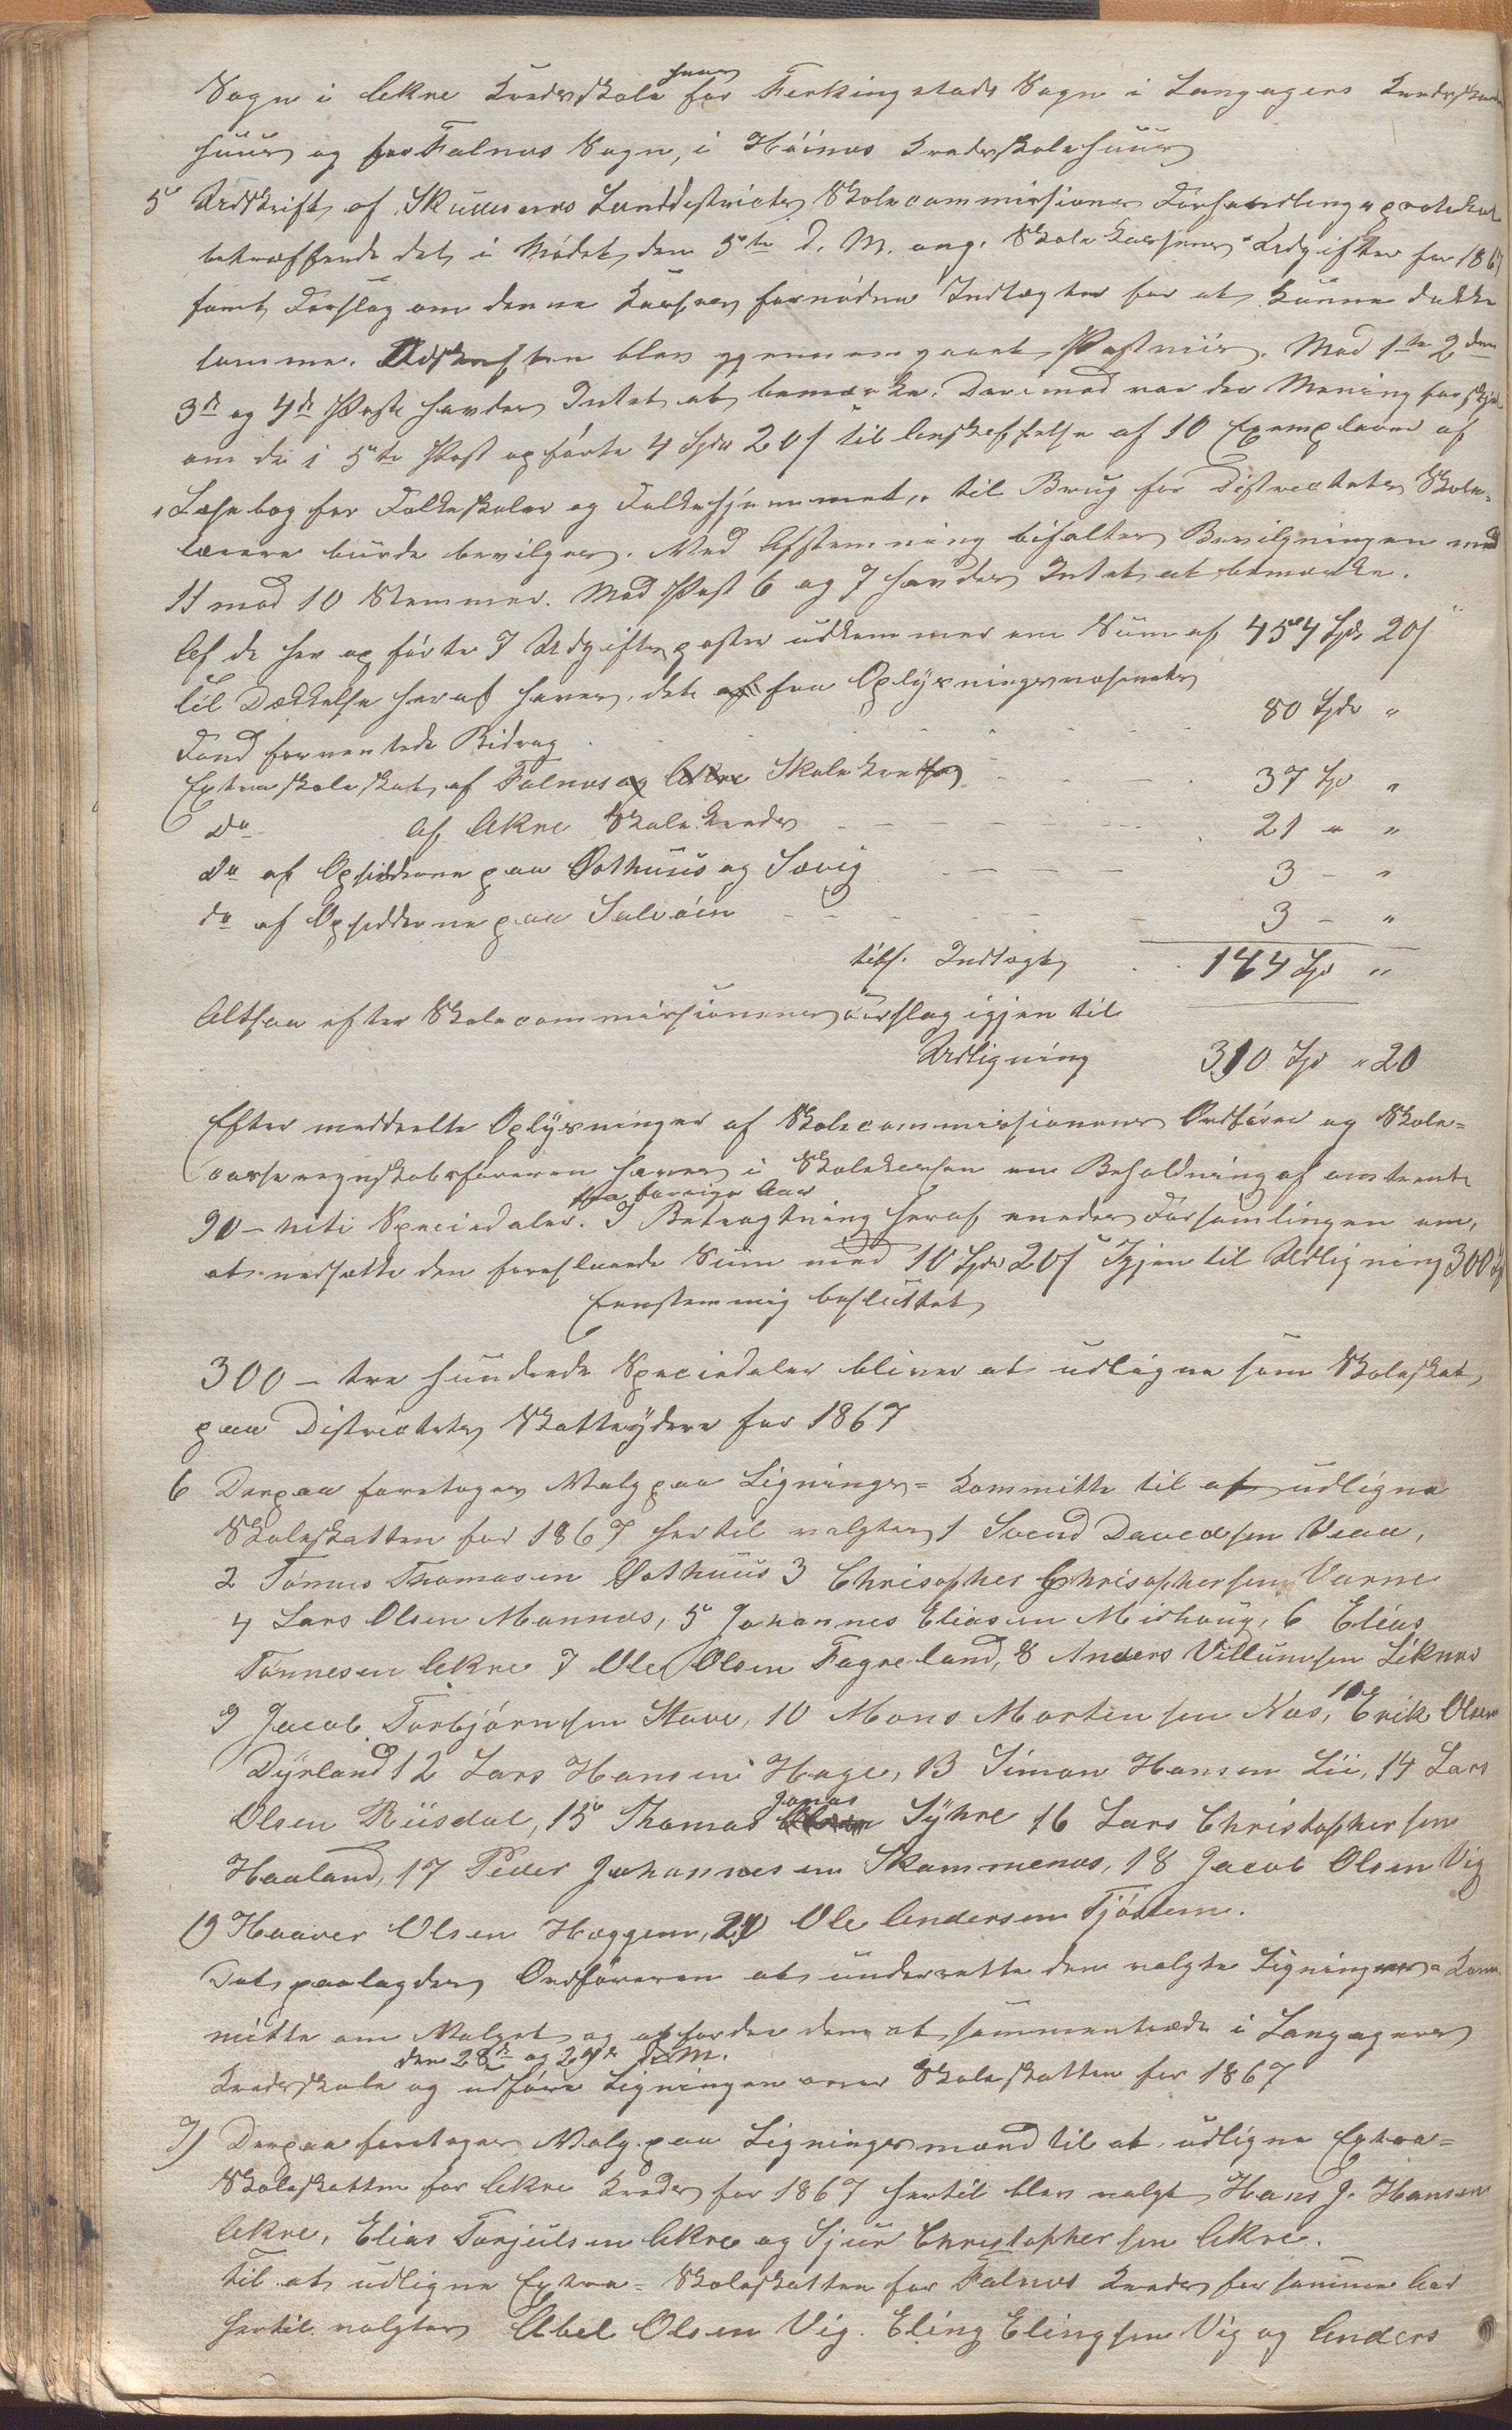 Sogn i Akre Kredsskole huus for Ferkingstads Sogn i Langagers Kredsskole
huus og for Falnes Sogn, i Høinæs Kredsskolehuus
5 Udskrift af Skudenæs Landdistricts Skolecommissions Forhandlingsprotokol
betræffende det i Mødet den 5te d. M. ang. Skolekassens Udgifter for 1867
samt Forslag om denne Kasses fornødne Indtægter for at kunne dække
samme. Udskriften blev gjennemgaaet Postviis. Mod 1te 2den
3de og 4de Post havdes Intet at bemærke. Derimod var der Mening forskjel
om de i 5te Post opførte 4 Spd 20 s til Anskaffelse af 10 Exemplarer af
"Læsebog for Folkeskolen og Folkehjemmet," til Brug for Districtets Skole-
lærere burde bevilges. Ved Afstemning bifaltes Bevilgningen med
11 mod 10 Stemmer. Mod Post 6 og 7 havdes Intet at bemærke.
Af de her opførte 7 Udgiftsposter udkommer en Sum af 454 Spd 20 s
Til Dækkelse heraf haves, det fra Oplysningsvæsenets
Fond forventede Bidrag 80 Spdr "
Extraskoleskat af Falnes og Akre Skolekreds 37 Spd "
Do af Akre Skolekreds 21 " "
do af Opsidderne paa Østhuus og Sævig 3 - "
do af Opsidderne paa Salvøen 3 - "
tils. Indtægt 144 Spd "
Altsaa efter Skolecommissionens Forslag igjen til
Udligning 310 Spd " 20
Efter meddeelte Oplysninger af Skolecommissionens Ordfører og Skole-
casseregnskabsføreren haves i Skolekassen en Beholdning af omtrent
fra forrige Aar
90 - niti Speciedaler. I Betragtning heraf enedes Forsamlingen om,
at nedsætte den foreslaaede Sum med 10 Spd 20 s Igjen til Udligning 300 Sp
Eenstemmig besluttet
300 - tre hundrede Speciedaler bliver at udligne som Skoleskat
paa Districtets Skatteydere for 1867
6 Derpaa foretoges Valg paa Lignings-Kommitte til at udligne
Skoleskatten for 1867 hertil valgtes 1 Svend Davedsen Veaa,
2 Tønnes Thomasen Østhuus 3 Chrisopher Chrisophersen Varne
4 Lars Olsen Mannes, 5 Johannes Eliasen Midhaug, 6 Elias
Tønnesen Akre 7 Ole Olsen Fagreland, 8 Anders Villumsen Liknes
9 Jacob Torbjørnsen Stave, 10 Mons Mortensen Næs, 11 Erik Olsen
Dyrland 12 Lars Hansen Hage, 13 Simon Hansen Lii, 14 Lars
Olsen Riisdal, 15 Thomas Jonas Syhre 16 Lars Christophersen
Haaland, 17 Peder Johannesen Skammenæs, 18 Jacob Olsen Vig
19 Haaver Olsen Hæggem, 20 Ole Andersen Tjøstem.
Det paalagdes Ordføreren at underrette den valgte Lignings-Kom
mitte om Valget og opfordre dem at sammentræde i Langagers
den 28de og 29de d.M.
Kredsskole og udføre Ligningen over Skoleskatten for 1867
7) Derpaa foretoges Valg paa Ligningsmænd til at udligne Extra-
Skoleskatten for Akre Kreds for 1867 hertil blev valgt Hans J. Hansen
Akre, Elias Torjulsen Akre og Sjur Christophersen Akre.
Til at udligne Extra-Skoleskatten for Falnes Kreds for samme Aar
hertil valgtes Abel Olsen Vig. Eling Elingsen Vig og Anders